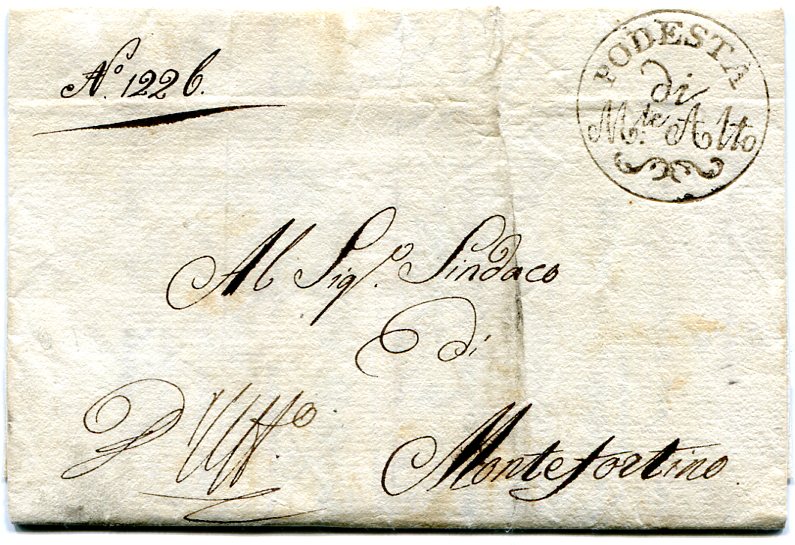 N.o 1226.
PODESTÀ
di
M.te Alto
Al Sig.o Sindaco
di
D'Uff.o
Montefortino